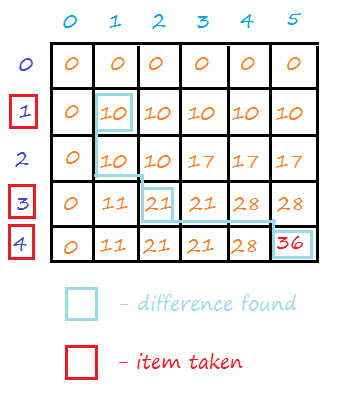 0 1 2 3 4 5
0 0 0 0 0 0 0
1 0 10 10 10 10 10
2 0 10 10 17 17 17
3 0 11 21 21 28 28
4 0 11 21 21 28 36
- difference found
- item taken